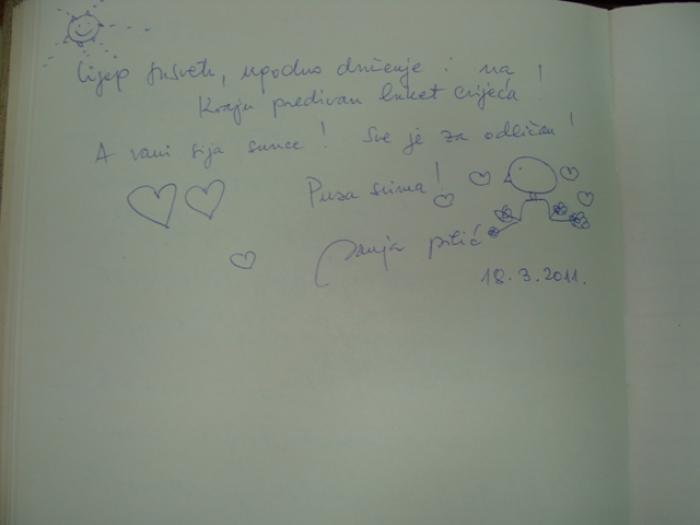 Lijep susret, ugodno druženje i na
kraju predivan buket cvijeća!
A vani sija sunce! Sve je za odličan!
Pusa svima!
Sanja Pilić
18.3.2011.